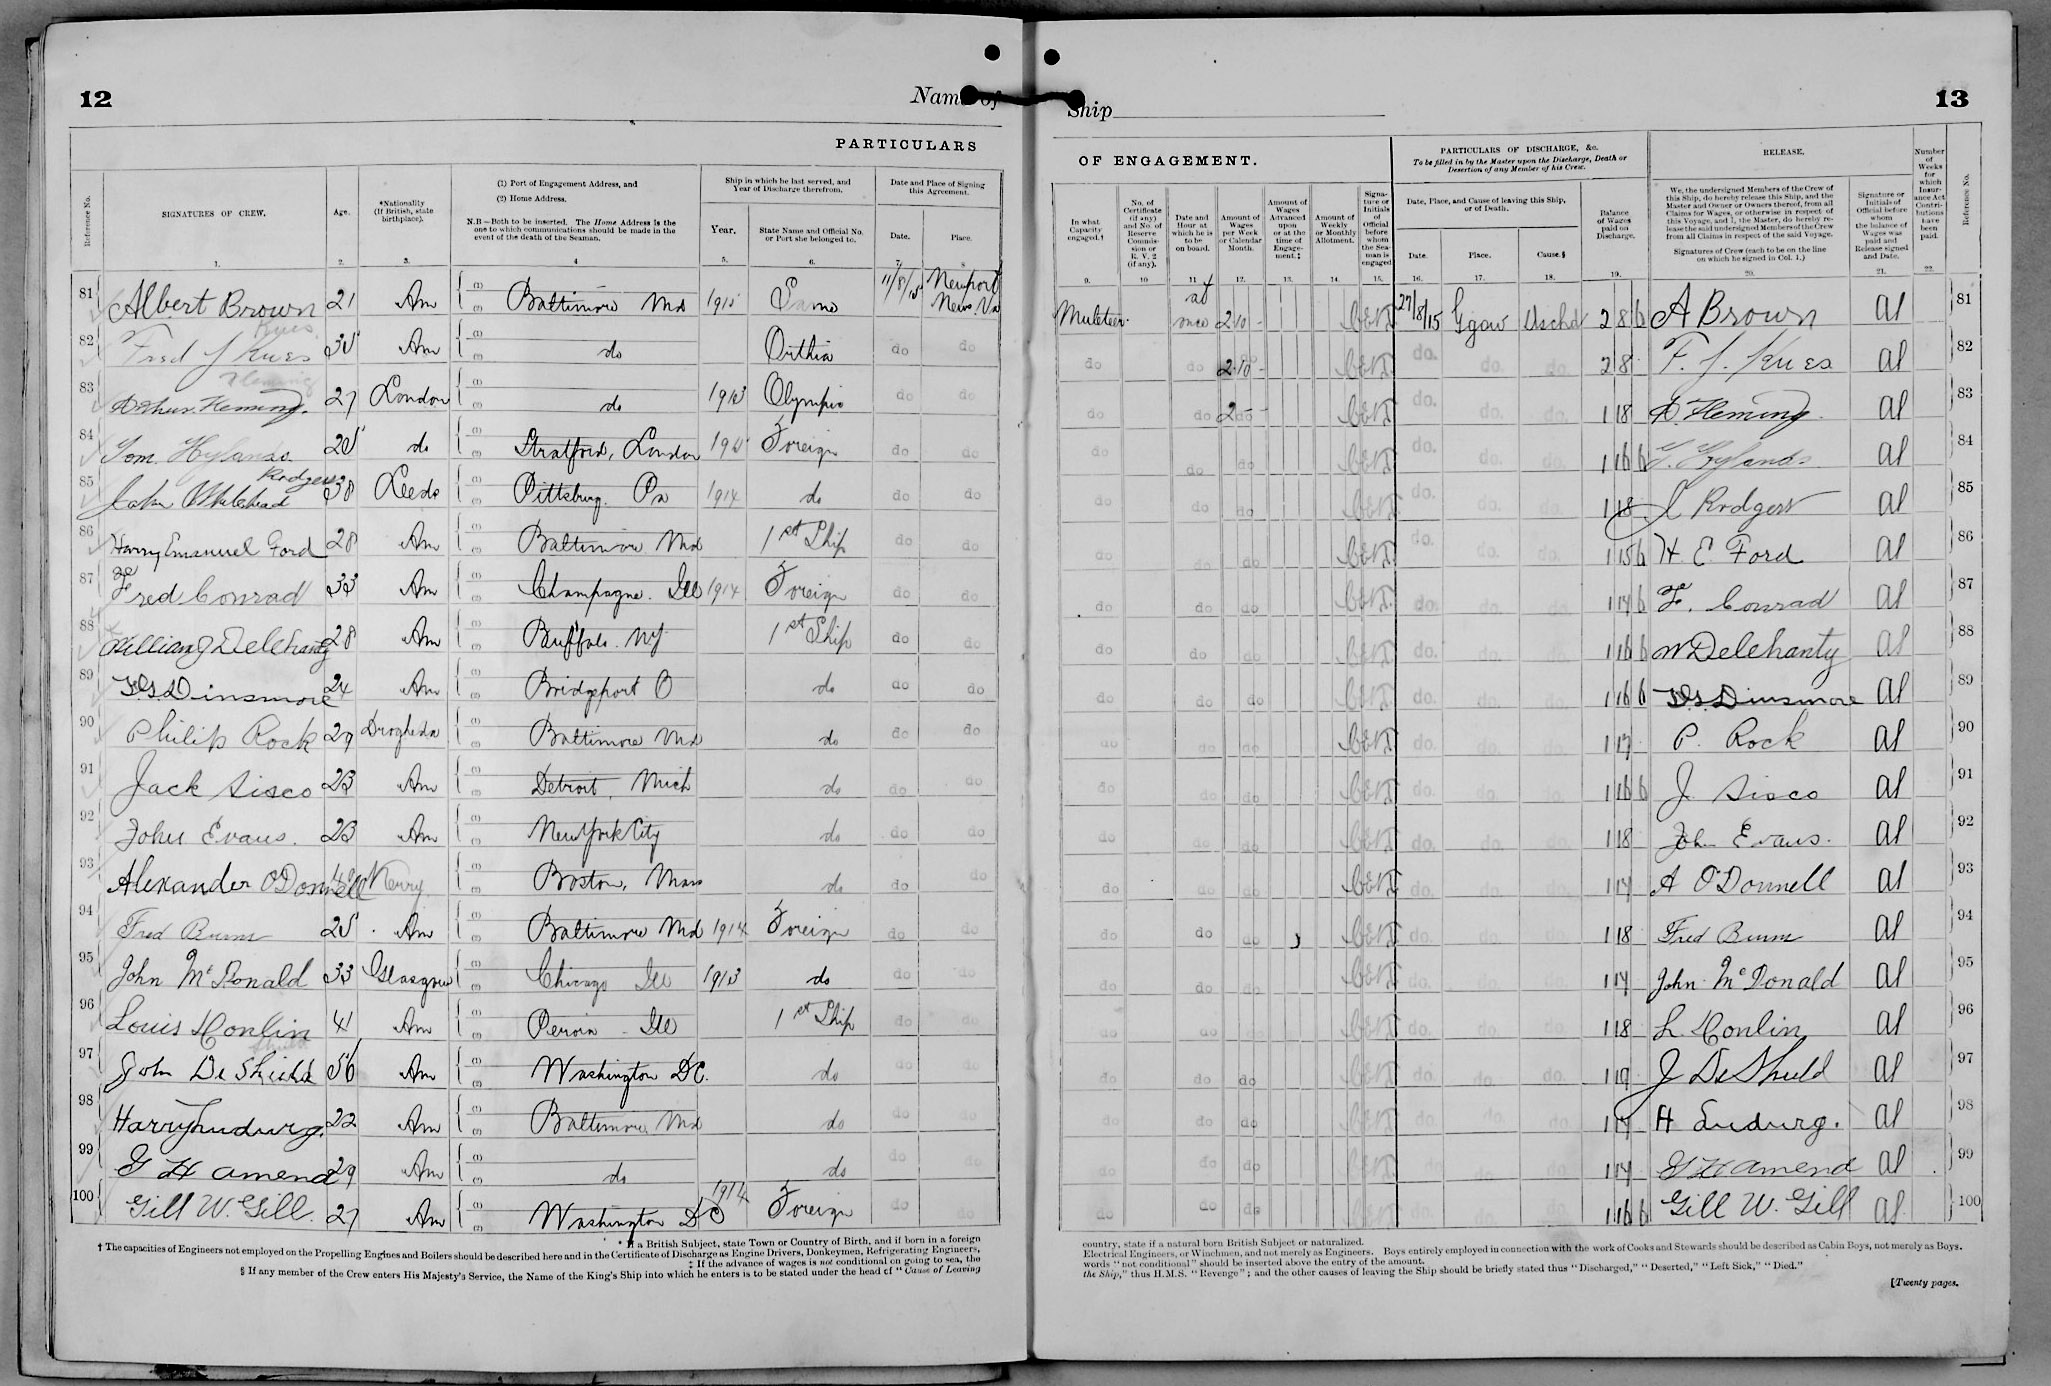 12
Name of
Ship
13
PARTICULARS
OF ENGAGEMENT.
PARTICULARS OF DISCHARGE, &c.
To be filled in by the Master upon the Discharge, Death or
Desertion of any Member of his Crew.
RELEASE.
Reference No.
SIGNATURES OF CREW.
1.
Age.
2.
*Nationality
(If British, state
birthplace).
3.
(1) Port of Engagement Address, and
(2) Home Address.
N.B—Both to be inserted. The Home Address is the
one to which communications should be made in the
event of the death of the Seaman.
4
Ship in which he last served, and
Year of Discharge therefrom.
Year.
5.
State Name and Official No.
or Port she belonged to.
6.
Date and Place of Signing
this Agreement.
Date.
7.
Place.
8
In what
Capacity
engaged.†
9.
No. of
Certificate
(if any)
and No. of
Reserve
Commis-
sion or
R. V. 2
(if any).
10
Date and
Hour at
which he is
to be
on board.
11
Amount of
Wages
per Week
or Calendar
Month.
12.
Amount of
Wages
Advanced
upon
or at the
time of
Engage-
ment.‡
13.
Amount of
Weekly
or Monthly
Allotment.
14.
Signa-
ture or
Initials
of
Official
before
whom
the Sea-
man is
engaged
15.
Date, Place, and Cause of leaving this Ship,
or of Death.
Date.
16.
Place.
17.
Cause.§
18.
Balance
of Wages
paid on
Discharge.
19.
We, the undersigned Members of the Crew of
this Ship, do hereby release this Ship, and the
Master and Owner or Owners thereof, from all
Claims for Wages, or otherwise in respect of
this Voyage, and I, the Master, do hereby re-
lease the said undersigned Members of the Crew
from all Claims in respect of the said Voyage.
Signatures of Crew (each to be on the line
on which he signed in Col. 1.)
20.
Signature or
Initials of
Official before
whom
the balance of
Wages was
paid and
Release signed
and Date.
21.
Number
of
Weeks
for
which
Insur-
ance Act
Contri-
butions
have
been
paid.
22.
Reference No.
81 Albert Brown 21 Am Baltimore Md 1915 Same 11/8/15 Newport News. Va Muleteer at once 2 10 - 27/8/15 Ggow Dischd 2 8 6 A Brown al 81
Kues
82 Fred J Kues 35 Am do Orthia do do do do 2 10 - do. do. do. 2 8 F. J. Kues al 82
Fleming
83 Arthur Fleming. 27 London do 1913 Olympic do do do do 2 - - do. do. do. 1 18 A. Fleming al 83
84 Tom Hylands 25 do Stratford, London Foreign do do do do do do. do. 1 16 6 T. Hylands al 84
Rodgers
85 John Whitehead 38 Leeds Pittsburg. Pa 1914 do do do do do do do. do. do. 1 18 J Rodgers al 85
86 Harry Emanuel Ford 28 Am Baltimore Md 1st Ship do do do do do do. do. do. 1 15 6 H E Ford al 86
87 Fred Conrad 33 Am Champagne. Ill 1914 Foreign do do do do do do. do. do. 1 14 6 F. Conrad al 87
88 William J Delehanty 28 Am Buffalo. NY 1st Ship do do do do do do. do. do. 1 16 6 W Delehanty al 88
89 Dinsmore 24 Am Bridgeport O do do do do do do do. do. do. 1 16 6 Dinsmore al 89
90 Philip Rock 27 Drogheda Baltimore Md do do do do do do do. do. do. 1 17 P. Rock al 90
91 Jack Sisco 23 Am Detroit, Mich do do do do do do do. do. do. 1 16 6 J. Sisco al 91
92 John Evans. 23 Am New York City do do do do do do do. do. do. 1 18 John Evans. al 92
93 Alexander O'Donnell 40 Kerry Boston, Mass do do do do do do do. do. do. 1 14 A O'Donnell al 93
94 Fred Burns 25 Am Baltimore Md 1914 Foreign do do do do do do. do. do. 1 18 Fred Burns al 94
95 John McDonald 33 Glasgow Chicago Ill 1913 do do do do do do do. do. do. 1 14 John McDonald al 95
96 Louis Honlin 41 Am Peroia - Ill 1st Ship do do do do do do. do. do. 1 18 L. Honlin al 96
Shield
97 John De Shield 56 Am Washington DC. do do do do do do do. do. do. 1 19 J DeShield al 97
98 Harry Ludwrg. 22 Am Baltimore Md do do do do do do do. do. do. 1 14 H Ludwrg. al 98
99 G H Amend 29 Am do do do do do do do do. do. do. 1 14 G H Amend al 99
100 Gill W. Gill. 27 Am Washington DC 1914 Foreign do do do do do do. do. do. 1 16 6 Gill W. Gill al. 100
* If a British Subject, state Town or Country of Birth, and if born in a foreign
country, state if a natural born British Subject or naturalized.
† The capacities of Engineers not employed on the Propelling Engines and Boilers should be described here and in the Certificate of Discharge as Engine Drivers, Donkeymen, Refrigerating Engineers,
Electrical Engineers, or Winchmen, and not merely as Engineers. Boys entirely employed in connection with the work of Cooks and Stewards should be described as Cabin Boys, not merely as Boys.
‡ If the advance of wages is not conditional on going to sea, the
words "not conditional" should be inserted above the entry of the amount.
§ If any member of the Crew enters His Majesty's Service, the Name of the King's Ship into which he enters is to be stated under the head of "Cause of Leaving
the Ship," thus H.M.S. "Revenge"; and the other causes of leaving the Ship should be briefly stated thus "Discharged," "Deserted," "Left Sick," "Died."
[Twenty pages.